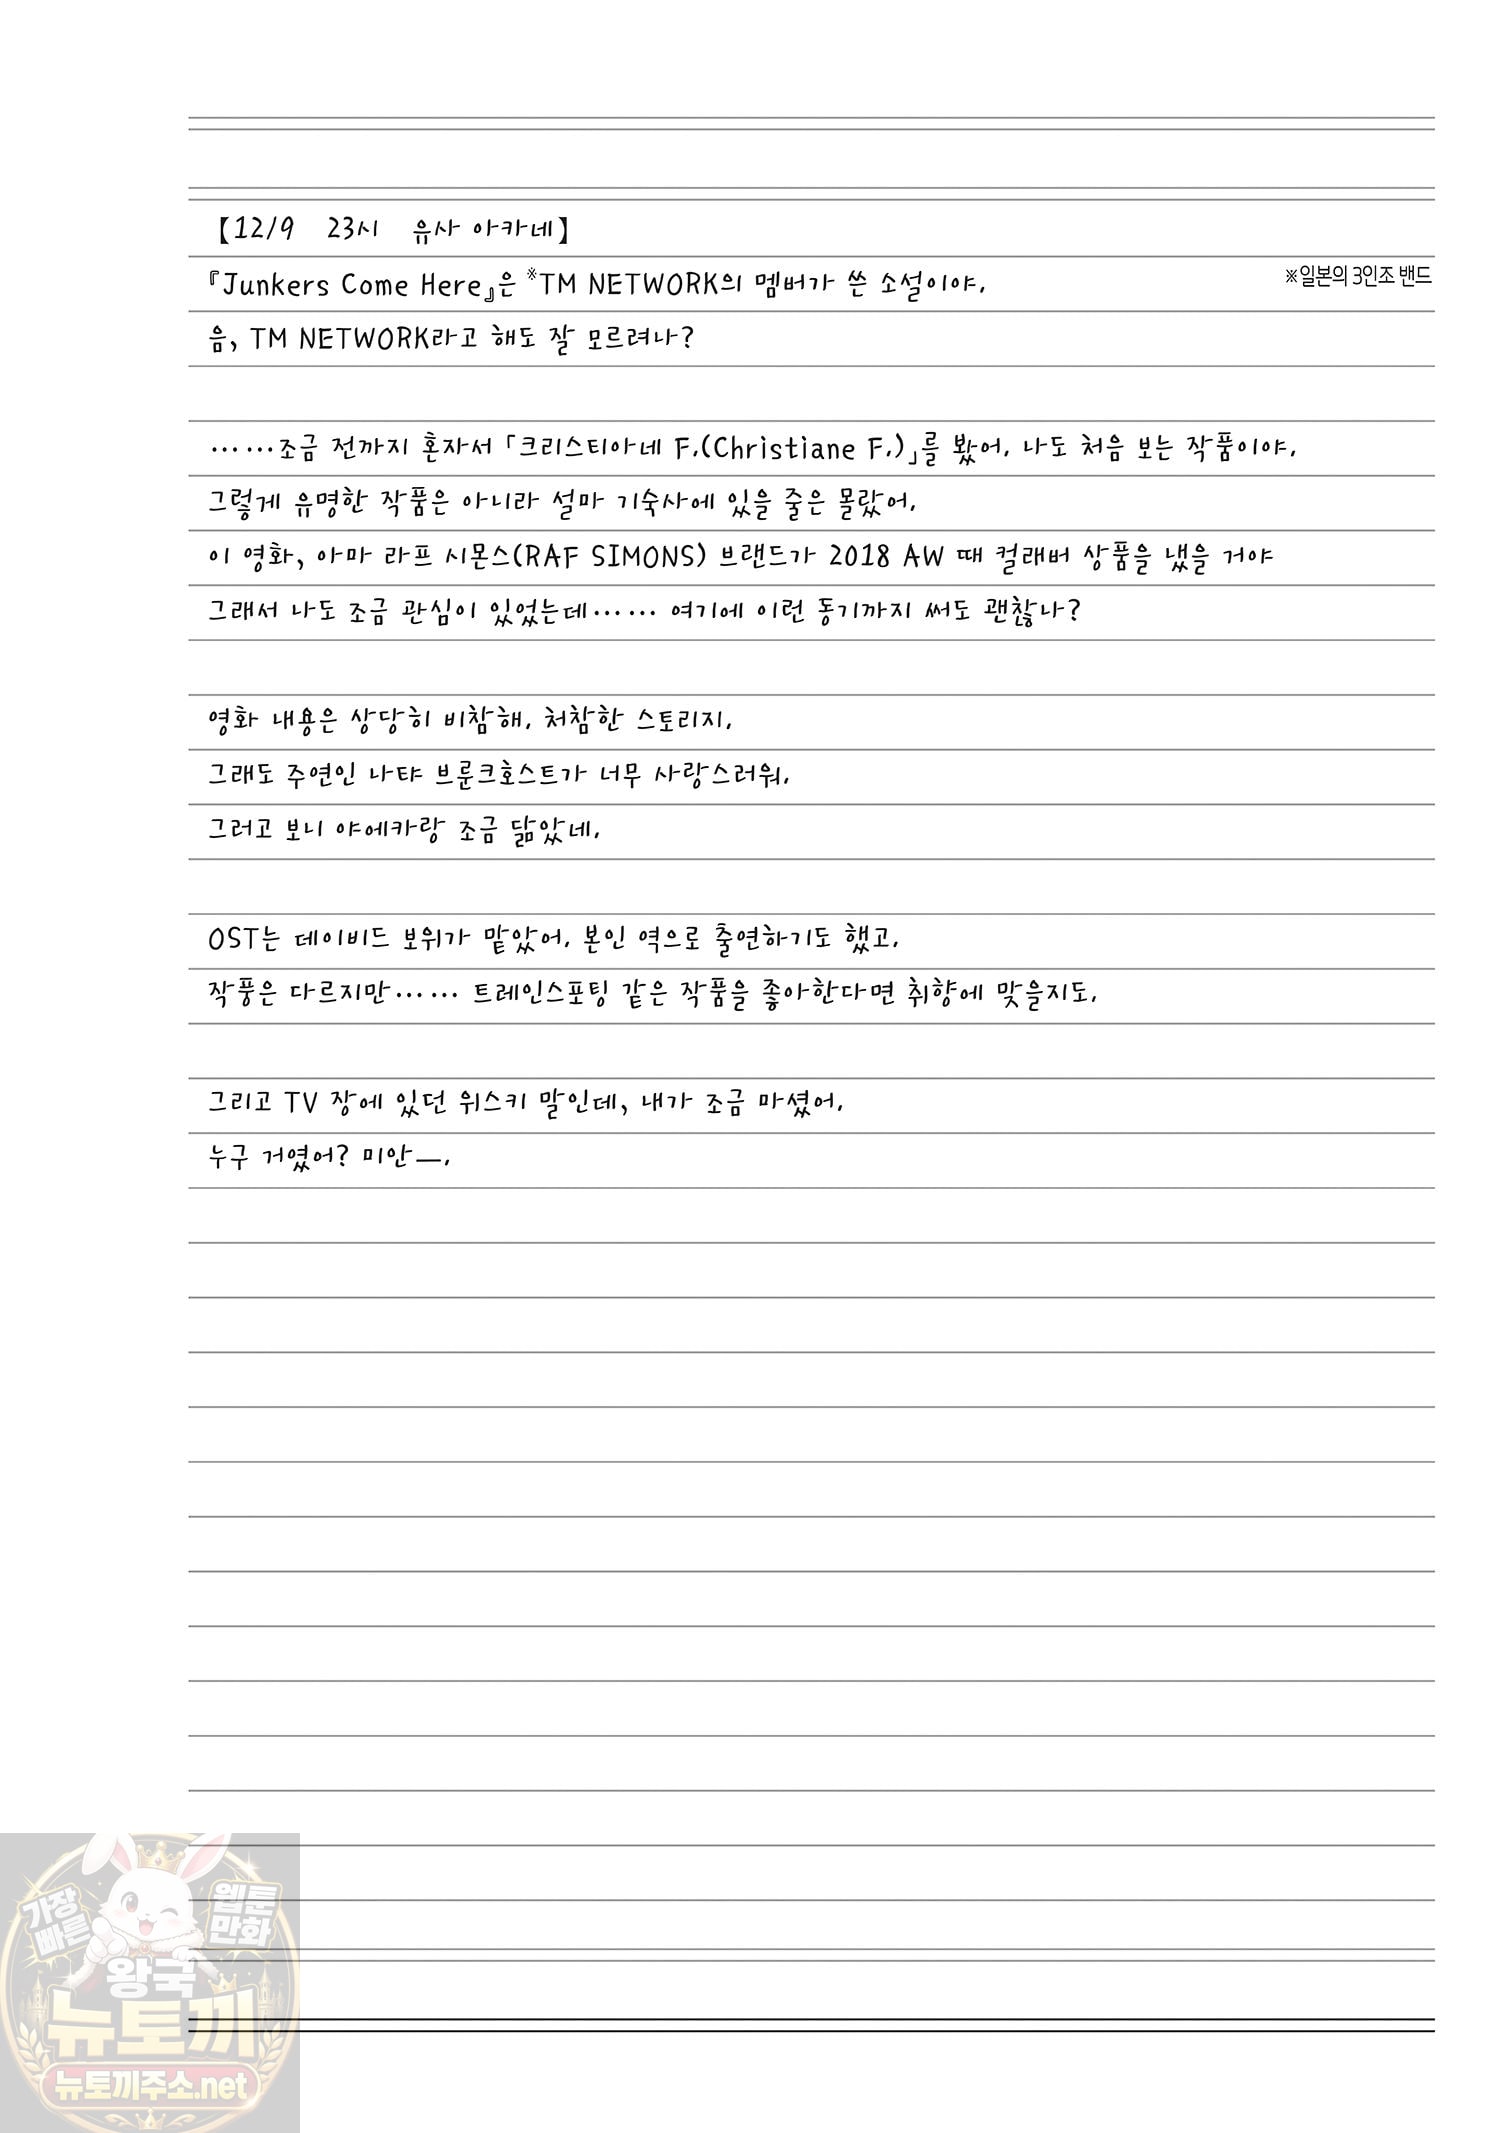 【12/9 23시 유사 아카네】
『Junkers Come Here』은 ※TM NETWORK의 멤버가 쓴 소설이야.
※일본의 3인조 밴드
음, TM NETWORK라고 해도 잘 모르려나?
……조금 전까지 혼자서 「크리스티아네 F.(Christiane F.)」를 봤어. 나도 처음 보는 작품이야.
그렇게 유명한 작품은 아니라 설마 기숙사에 있을 줄은 몰랐어.
이 영화, 아마 라프 시몬스(RAF SIMONS) 브랜드가 2018 AW 때 컬래버 상품을 냈을 거야
그래서 나도 조금 관심이 있었는데…… 여기에 이런 동기까지 써도 괜찮나?
영화 내용은 상당히 비참해. 처참한 스토리지.
그래도 주연인 나탸 브룬크호스트가 너무 사랑스러워.
그러고 보니 야에카랑 조금 닮았네.
OST는 데이비드 보위가 맡았어. 본인 역으로 출연하기도 했고.
작풍은 다르지만…… 트레인스포팅 같은 작품을 좋아한다면 취향에 맞을지도.
그리고 TV 장에 있던 위스키 말인데, 내가 조금 마셨어.
누구 거였어? 미안―.
가장
빠른
웹툰
만화
왕국
뉴토끼
뉴토끼주소.net